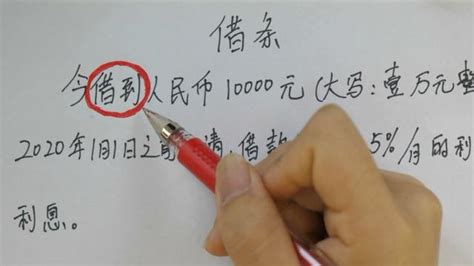 借条
今借到人民币10000元(大写:壹万元整
2020年1月1日之前 清,借款 5%/月的利
利息。